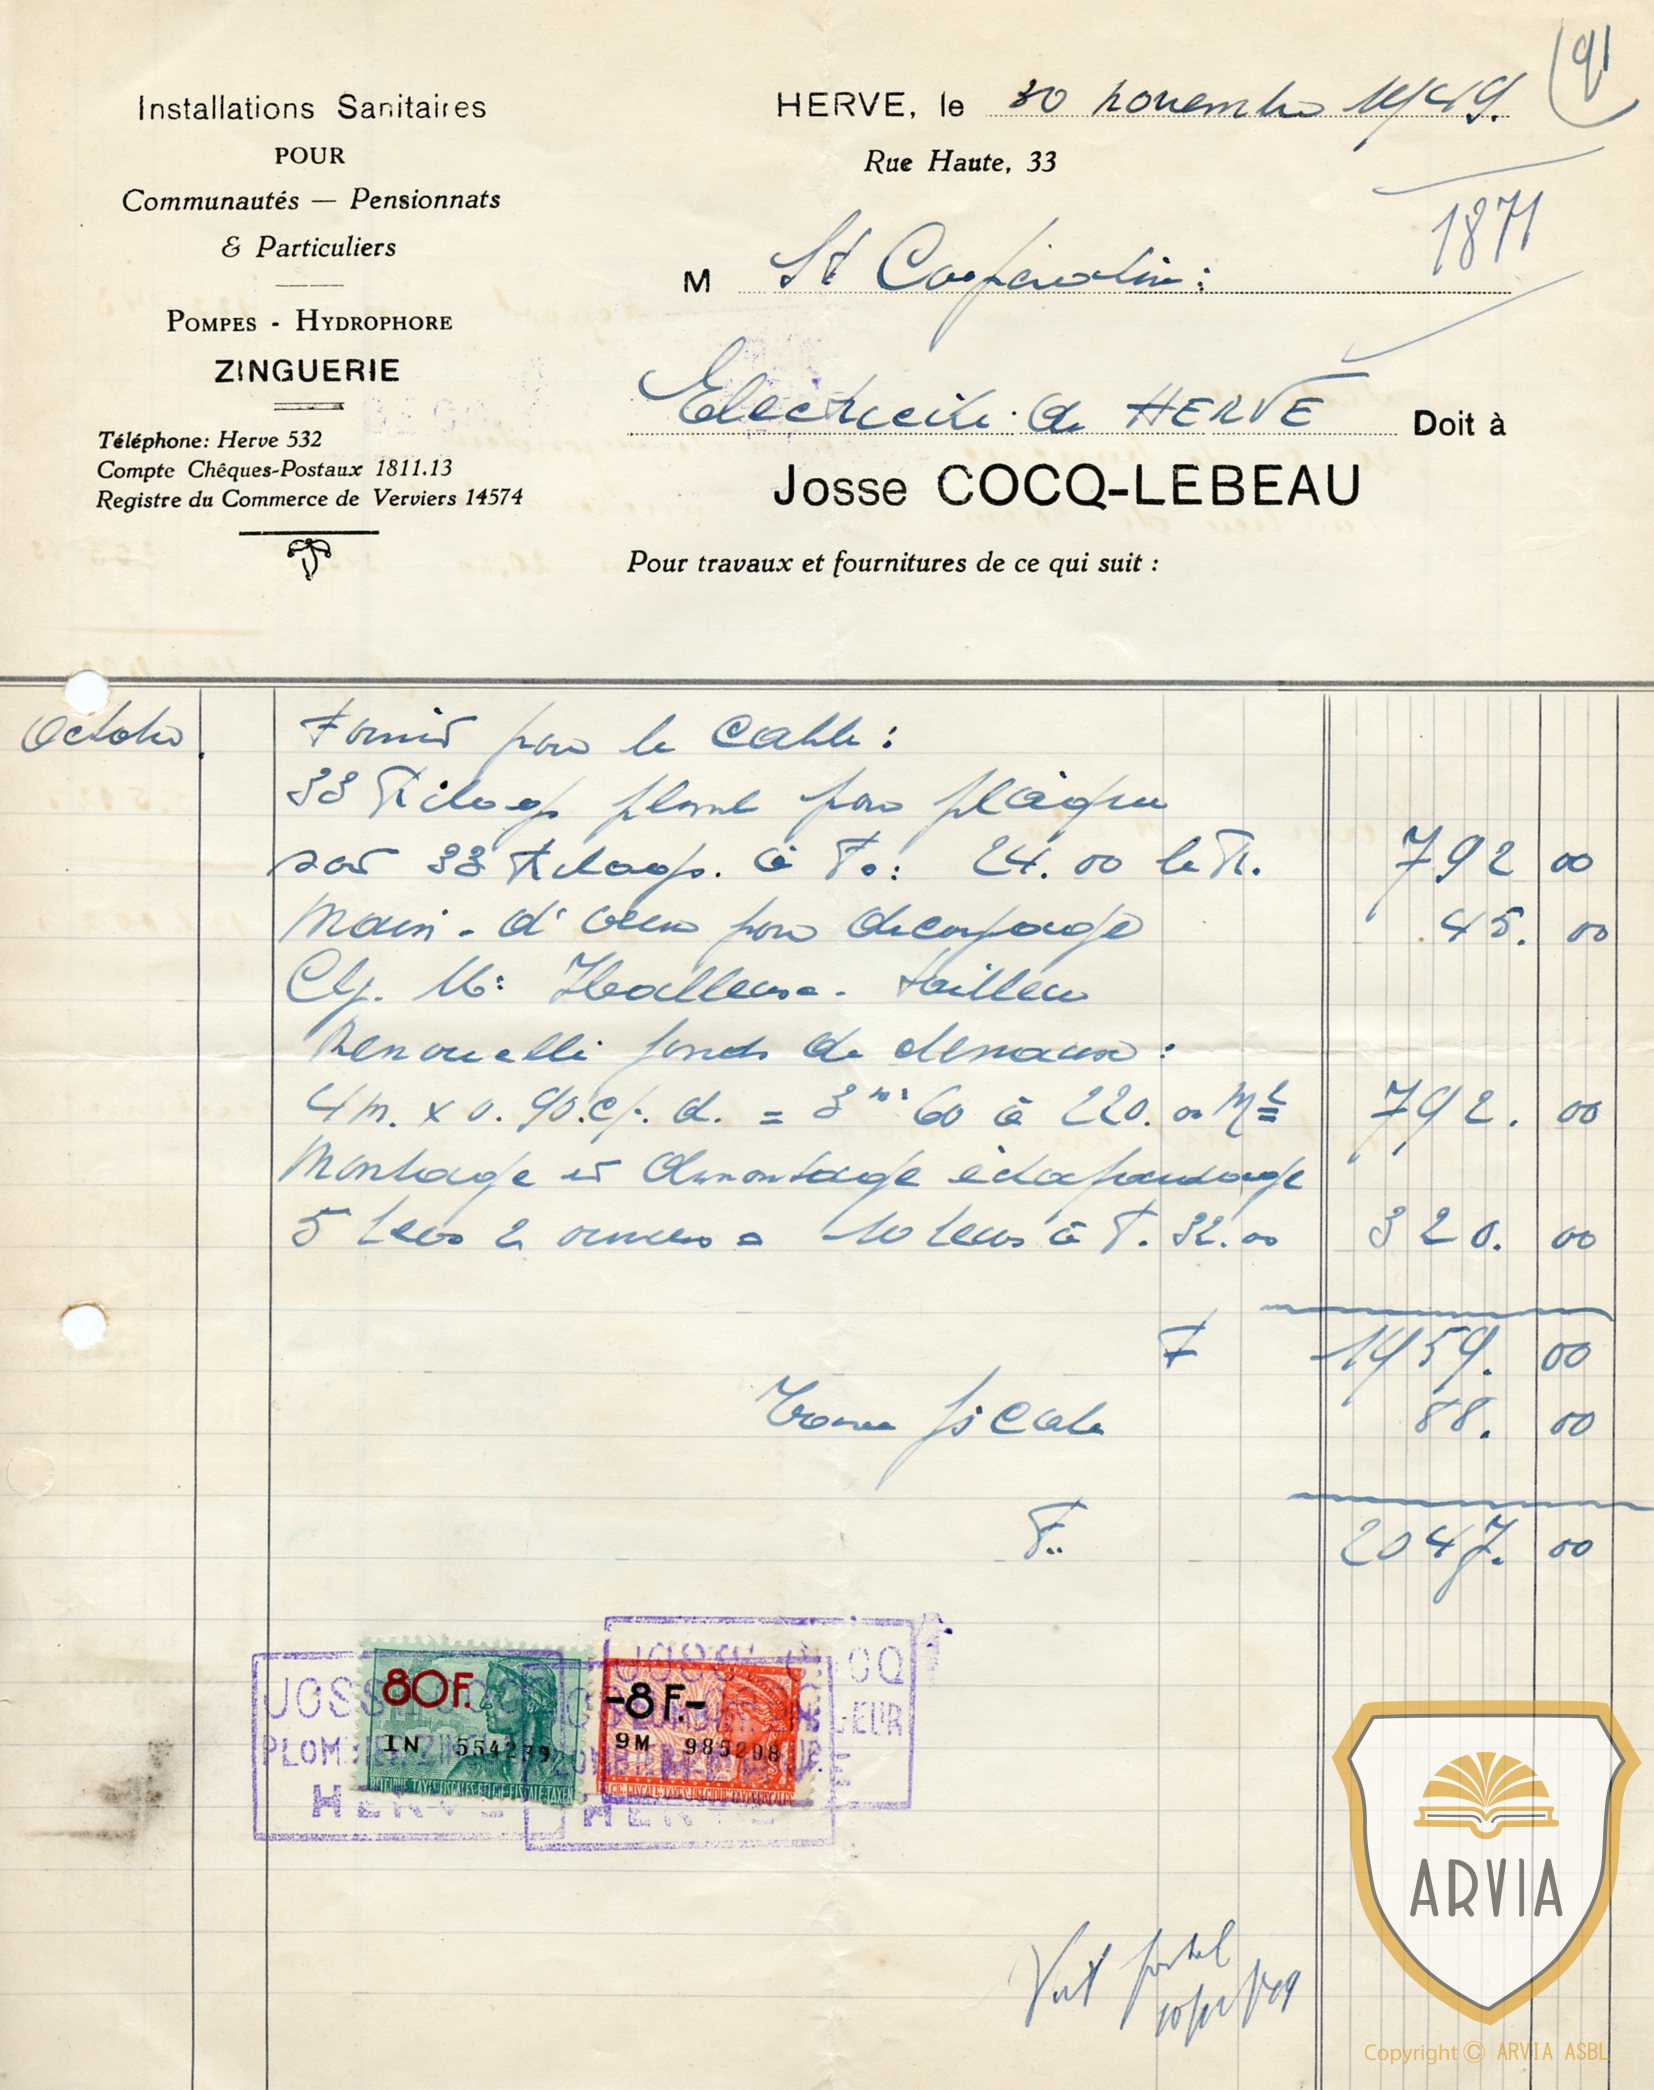 91
Installations Sanitaires
POUR
Communautés — Pensionnats
& Particuliers
POMPES - HYDROPHORE
ZINGUERIE
Téléphone: Herve 532
Compte Chêques-Postaux 1811.13
Registre du Commerce de Verviers 14574
HERVE, le 30 novembre 1949.
Rue Haute, 33
1871
M St Coopérative:
Electricité de HERVE Doit à
Josse COCQ-LEBEAU
Pour travaux et fournitures de ce qui suit :
Octobre. Fournis pour le Cable :
33 Kilogs plomb pour plaques
soit 33 Kilogs. à F.: 24.00 le K. 792 00
Main-d'œuvre pour découpage 45.00
Renouvellé fonds de
4m. x 0.90. = 3m:60 à 220.00 M2 792.00
Montage et démontage échafaudage
5 heures 2 = 10 heures à F. 32.00 320.00
F 1959.00
Taxe fiscale 88.00
F.. 2047.00
JOSSE COCQ
PLOMBIER-ZINGUEUR
HERVE
80F.
IN 554279
BELGIQUE-TAXES-FISCALES-BELGIE-FISCALE-TAXEN
-8F.-
9M 985208
Virt postal
10/12/49
ARVIA
Copyright © ARVIA ASBL